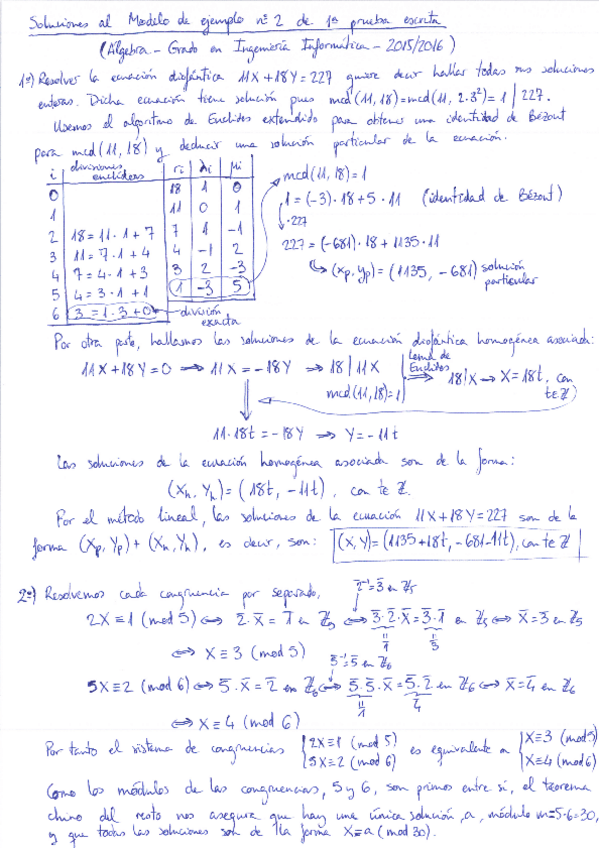 Soluciones al Modelo de ejemplo nº 2 de 1ª prueba escrita
(Álgebra - Grado en Ingeniería Informática - 2015/2016)
1º) Resolver la ecuación diofántica 11X+18Y=227 quiere decir hallar todas sus soluciones
enteras. Dicha ecuación tiene solución pues mcd(11,18)=mcd(11, 2·3²)=1 | 227.
Usemos el algoritmo de Euclides extendido para obtener una identidad de Bézout
para mcd(11,18) y deducir una solución particular de la ecuación.
i | divisiones euclídeas | ri | λi | μi
0 | | 18 | 1 | 0
1 | | 11 | 0 | 1
2 | 18=11·1+7 | 7 | 1 | -1
3 | 11=7·1+4 | 4 | -1 | 2
4 | 7=4·1+3 | 3 | 2 | -3
5 | 4=3·1+1 | 1 | -3 | 5
6 | 3=1·3+0 división exacta
mcd(11,18)=1
1=(-3)·18+5·11 (identidad de Bézout)
·227
227=(-681)·18+1135·11
(xp,yp)=(1135,-681) solución particular
Por otra parte, hallamos las soluciones de la ecuación diofántica homogénea asociada:
11X+18Y=0 → 11X=-18Y → 18|11X
mcd(11,18)=1
Lema de Euclides
18|X → X=18t, con t∈ℤ
11·18t=-18Y → Y=-11t
Las soluciones de la ecuación homogénea asociada son de la forma:
(Xh,Yh)=(18t,-11t), con t∈ℤ.
Por el método lineal, las soluciones de la ecuación 11X+18Y=227 son de la
forma (Xp,Yp)+(Xh,Yh), es decir, son: (X,Y)=(1135+18t,-681-11t), con t∈ℤ
2º) Resolvemos cada congruencia por separado,
2̄⁻¹=3̄ en ℤ5
2X≡1 (mod 5) ⟺ 2̄·X̄=1̄ en ℤ5 ⟺ 3̄·2̄·X̄=3̄·1̄ en ℤ5 ⟺ X̄=3̄ en ℤ5
1̄ 3̄
⟺ X≡3 (mod 5)
5̄⁻¹=5̄ en ℤ6
5X≡2 (mod 6) ⟺ 5̄·X̄=2̄ en ℤ6 ⟺ 5̄·5̄·X̄=5̄·2̄ en ℤ6 ⟺ X̄=4̄ en ℤ6
1̄ 4̄
⟺ X≡4 (mod 6)
Por tanto el sistema de congruencias { 2X≡1 (mod 5) 5X≡2 (mod 6) es equivalente a { X≡3 (mod 5) X≡4 (mod 6)
Como los módulos de las congruencias, 5 y 6, son primos entre sí, el teorema
chino del resto nos asegura que hay una única solución, a, módulo m=5·6=30,
y que todas las soluciones son de la forma X≡a (mod 30).